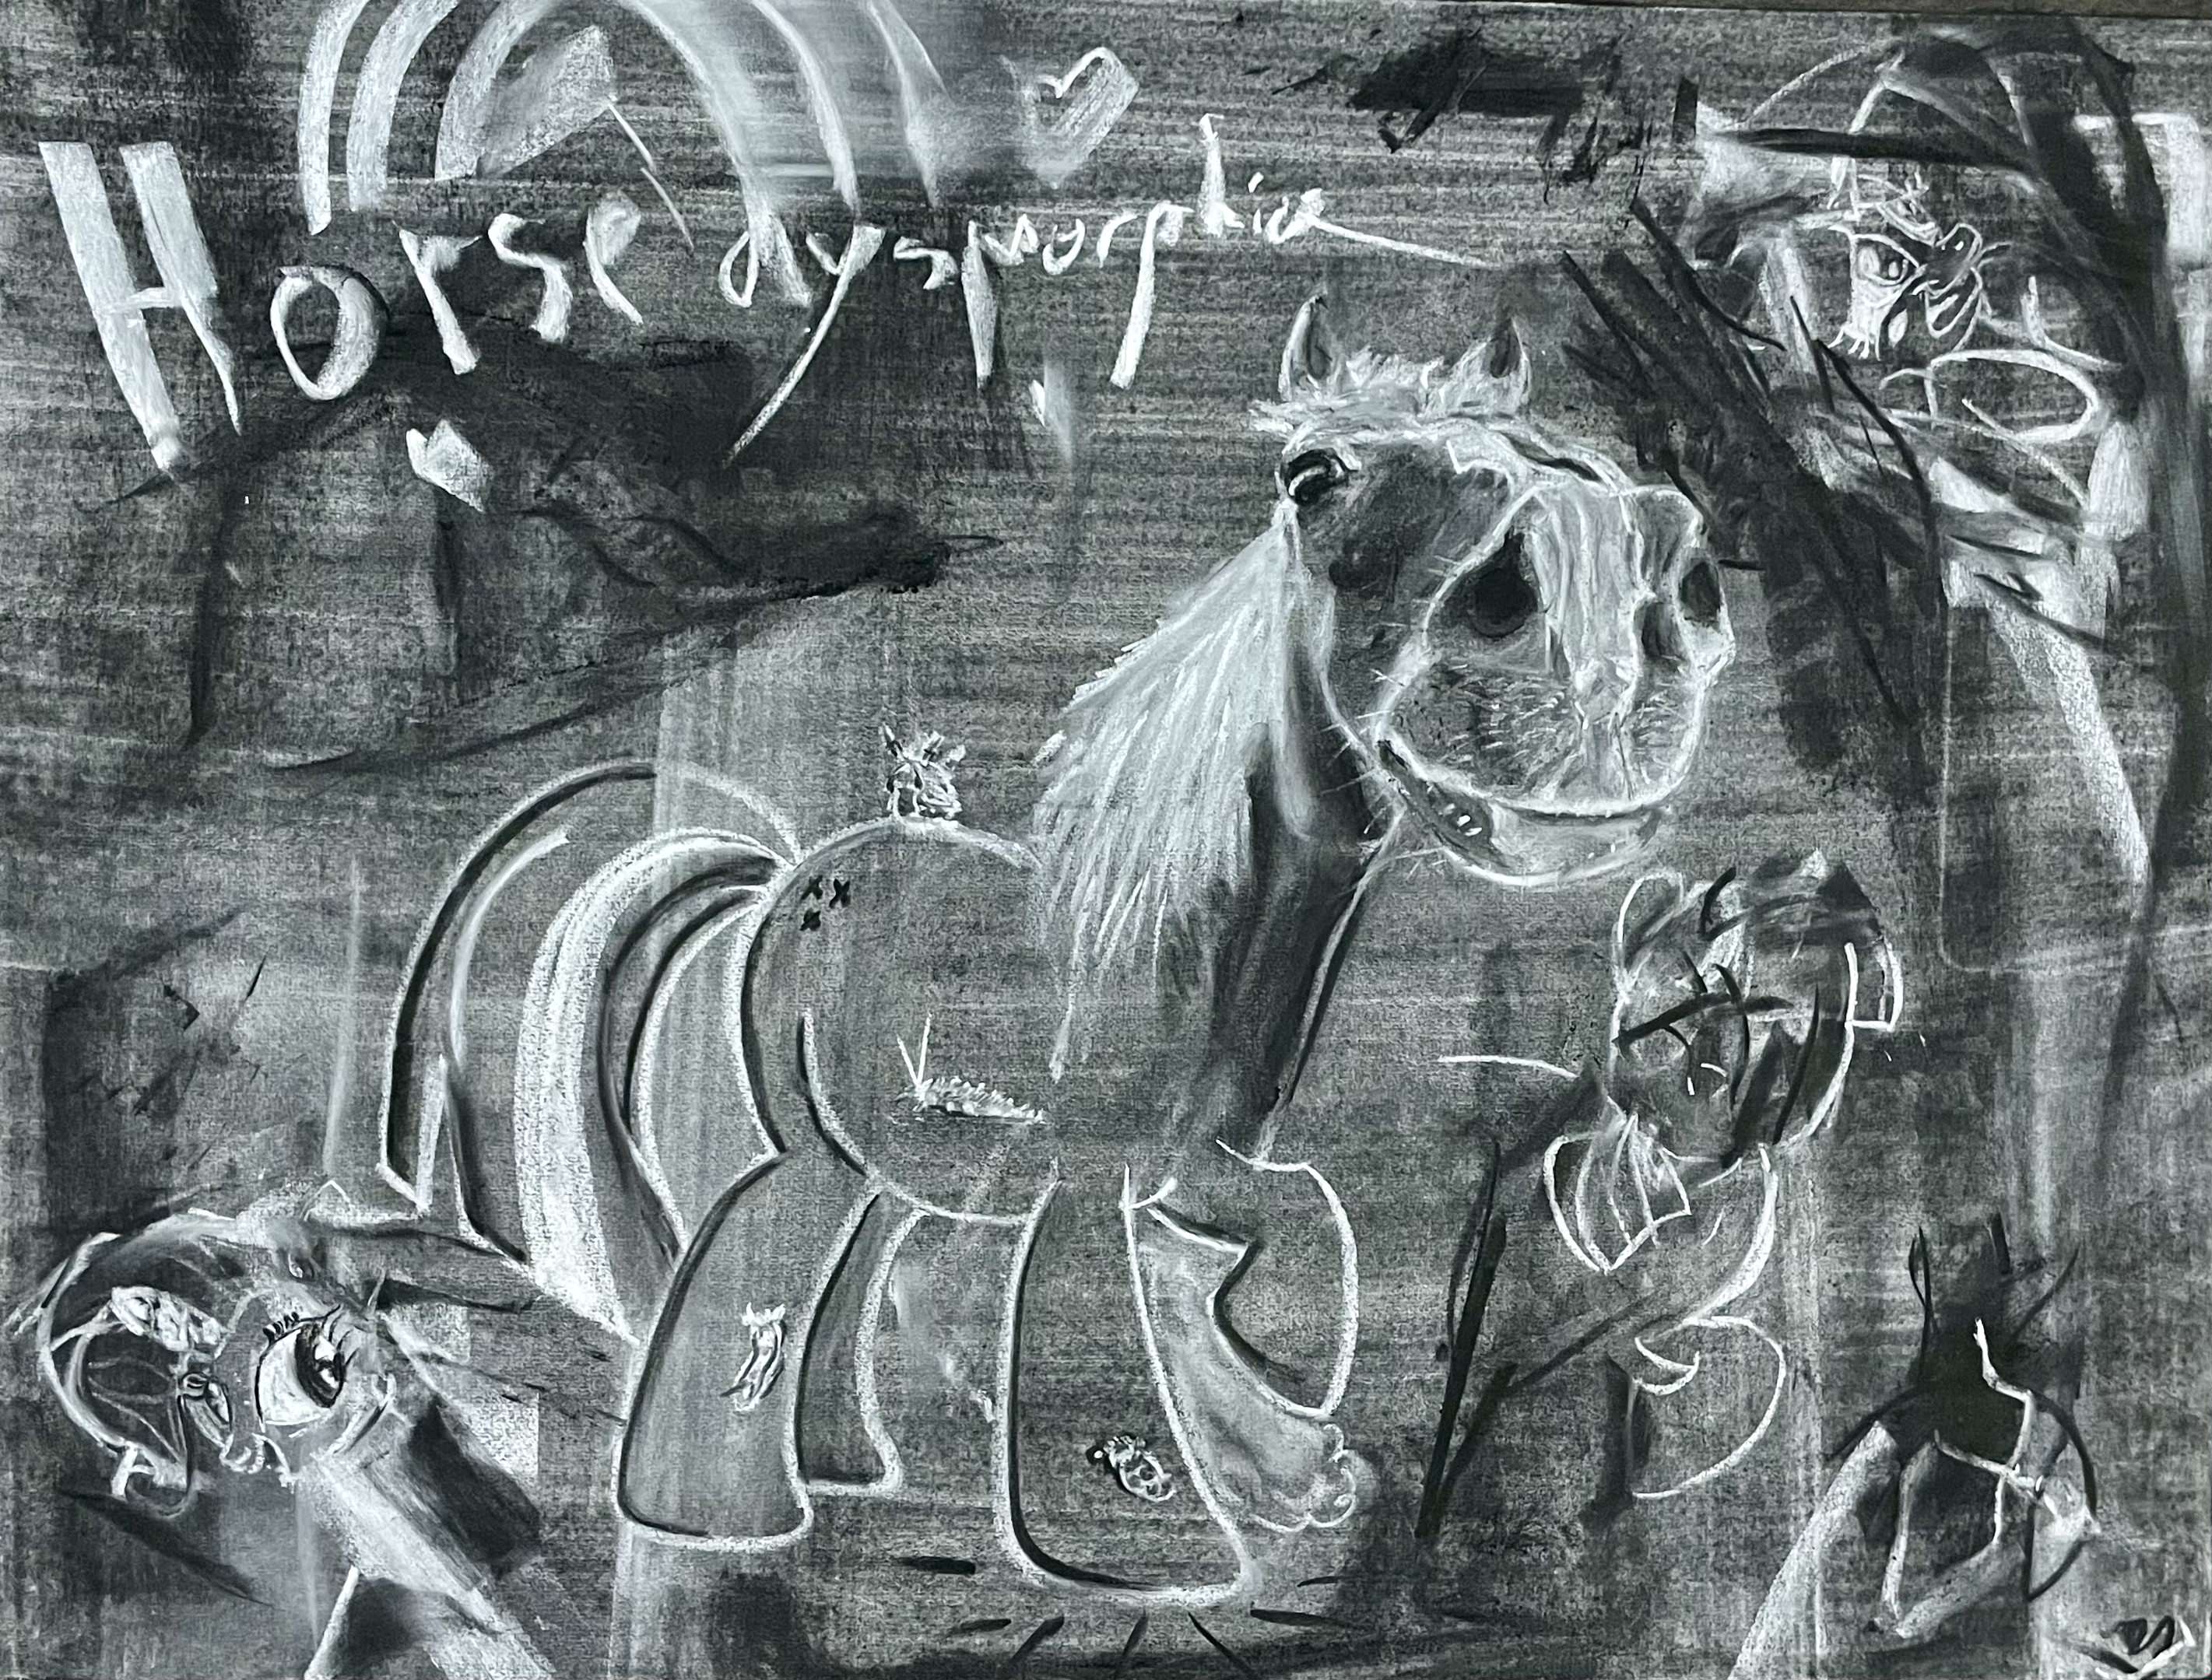 Horse dysmorphia